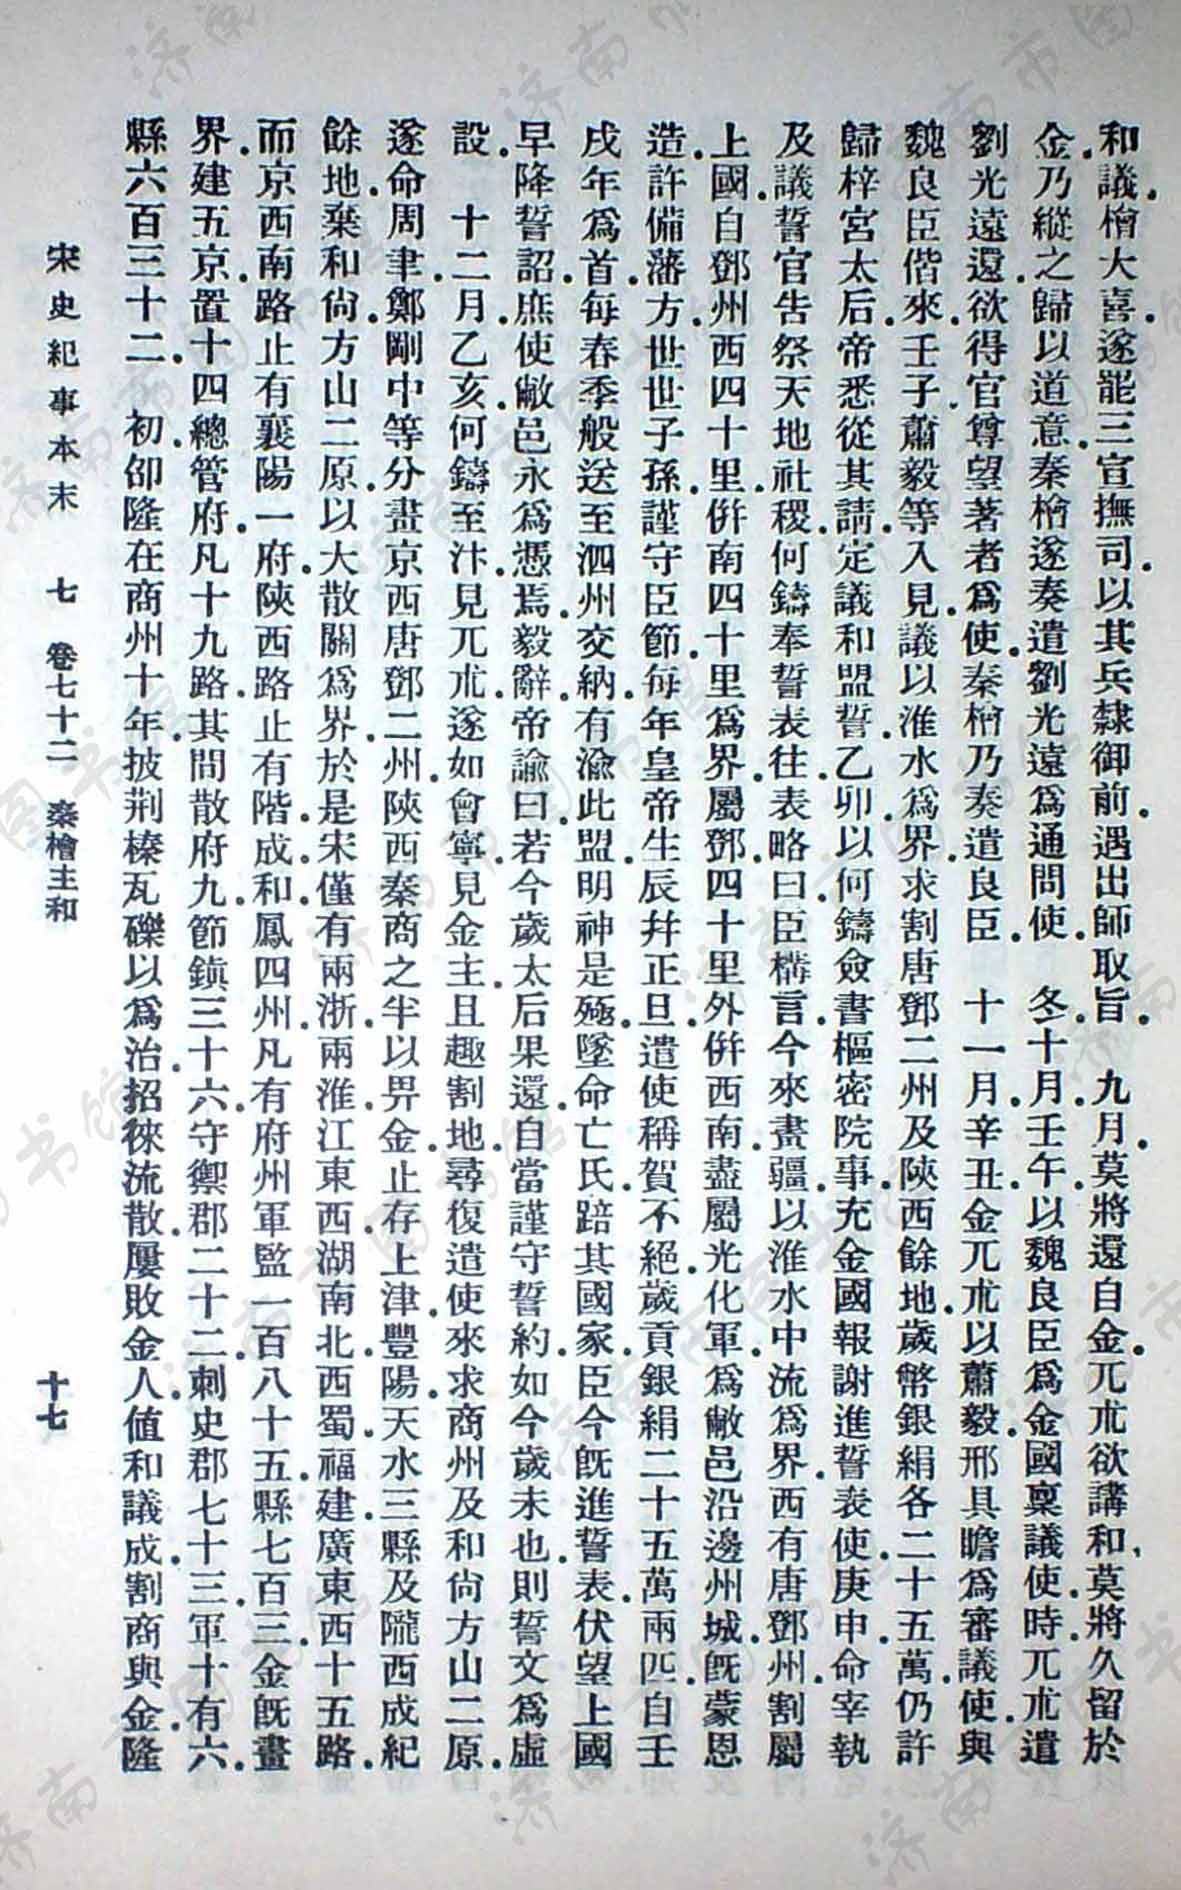 和議檜大喜遂罷三宣撫司以其兵隸御前遇出師取旨　九月莫將還自金兀朮欲講和莫將久留於
金乃縱之歸以道意秦檜遂奏遣劉光遠爲通問使　冬十月壬午以魏良臣爲金國稟議使時兀朮遣
劉光遠還欲得官尊望著者爲使秦檜乃奏遣良臣　十一月辛丑金兀朮以蕭毅邢具瞻爲審議使與
魏良臣偕來壬子蕭毅等入見議以淮水爲界求割唐鄧二州及陝西餘地歲幣銀絹各二十五萬仍許
歸梓宮太后帝悉從其請定議和盟誓乙卯以何鑄僉書樞密院事充金國報謝進誓表使庚申命宰執
及議誓官告祭天地社稷何鑄奉誓表往表略曰臣構言今來畫疆以淮水中流爲界西有唐鄧州割屬
上國自鄧州西四十里併南四十里爲界屬鄧四十里外併西南盡屬光化軍爲敝邑沿邊州城旣蒙恩
造許備藩方世世子孫謹守臣節每年皇帝生辰幷正旦遣使稱賀不絕歲貢銀絹二十五萬兩匹自壬
戌年爲首每春季般送至泗州交納有渝此盟明神是殛墜命亡氏踣其國家臣今旣進誓表伏望上國
早降誓詔庶使敝邑永爲憑焉毅辭帝諭曰若今歲太后果還自當謹守誓約如今歲未也則誓文爲虛
設　十二月乙亥何鑄至汴見兀朮遂如會寧見金主且趣割地尋復遣使來求商州及和尙方山二原
遂命周聿鄭剛中等分畫京西唐鄧二州陝西秦商之半以畀金止存上津豐陽天水三縣及隴西成紀
餘地棄和尙方山二原以大散關爲界於是宋僅有兩浙兩淮江東西湖南北西蜀福建廣東西十五路
而京西南路止有襄陽一府陝西路止有階成和鳳四州凡有府州軍監一百八十五縣七百三金旣畫
界建五京置十四總管府凡十九路其間散府九節鎮三十六守禦郡二十二刺史郡七十三軍十有六
縣六百三十二　初卲隆在商州十年披荆榛瓦礫以爲治招徠流散屢敗金人值和議成割商與金隆
宋史紀事本末　七　卷七十二　秦檜主和　十七